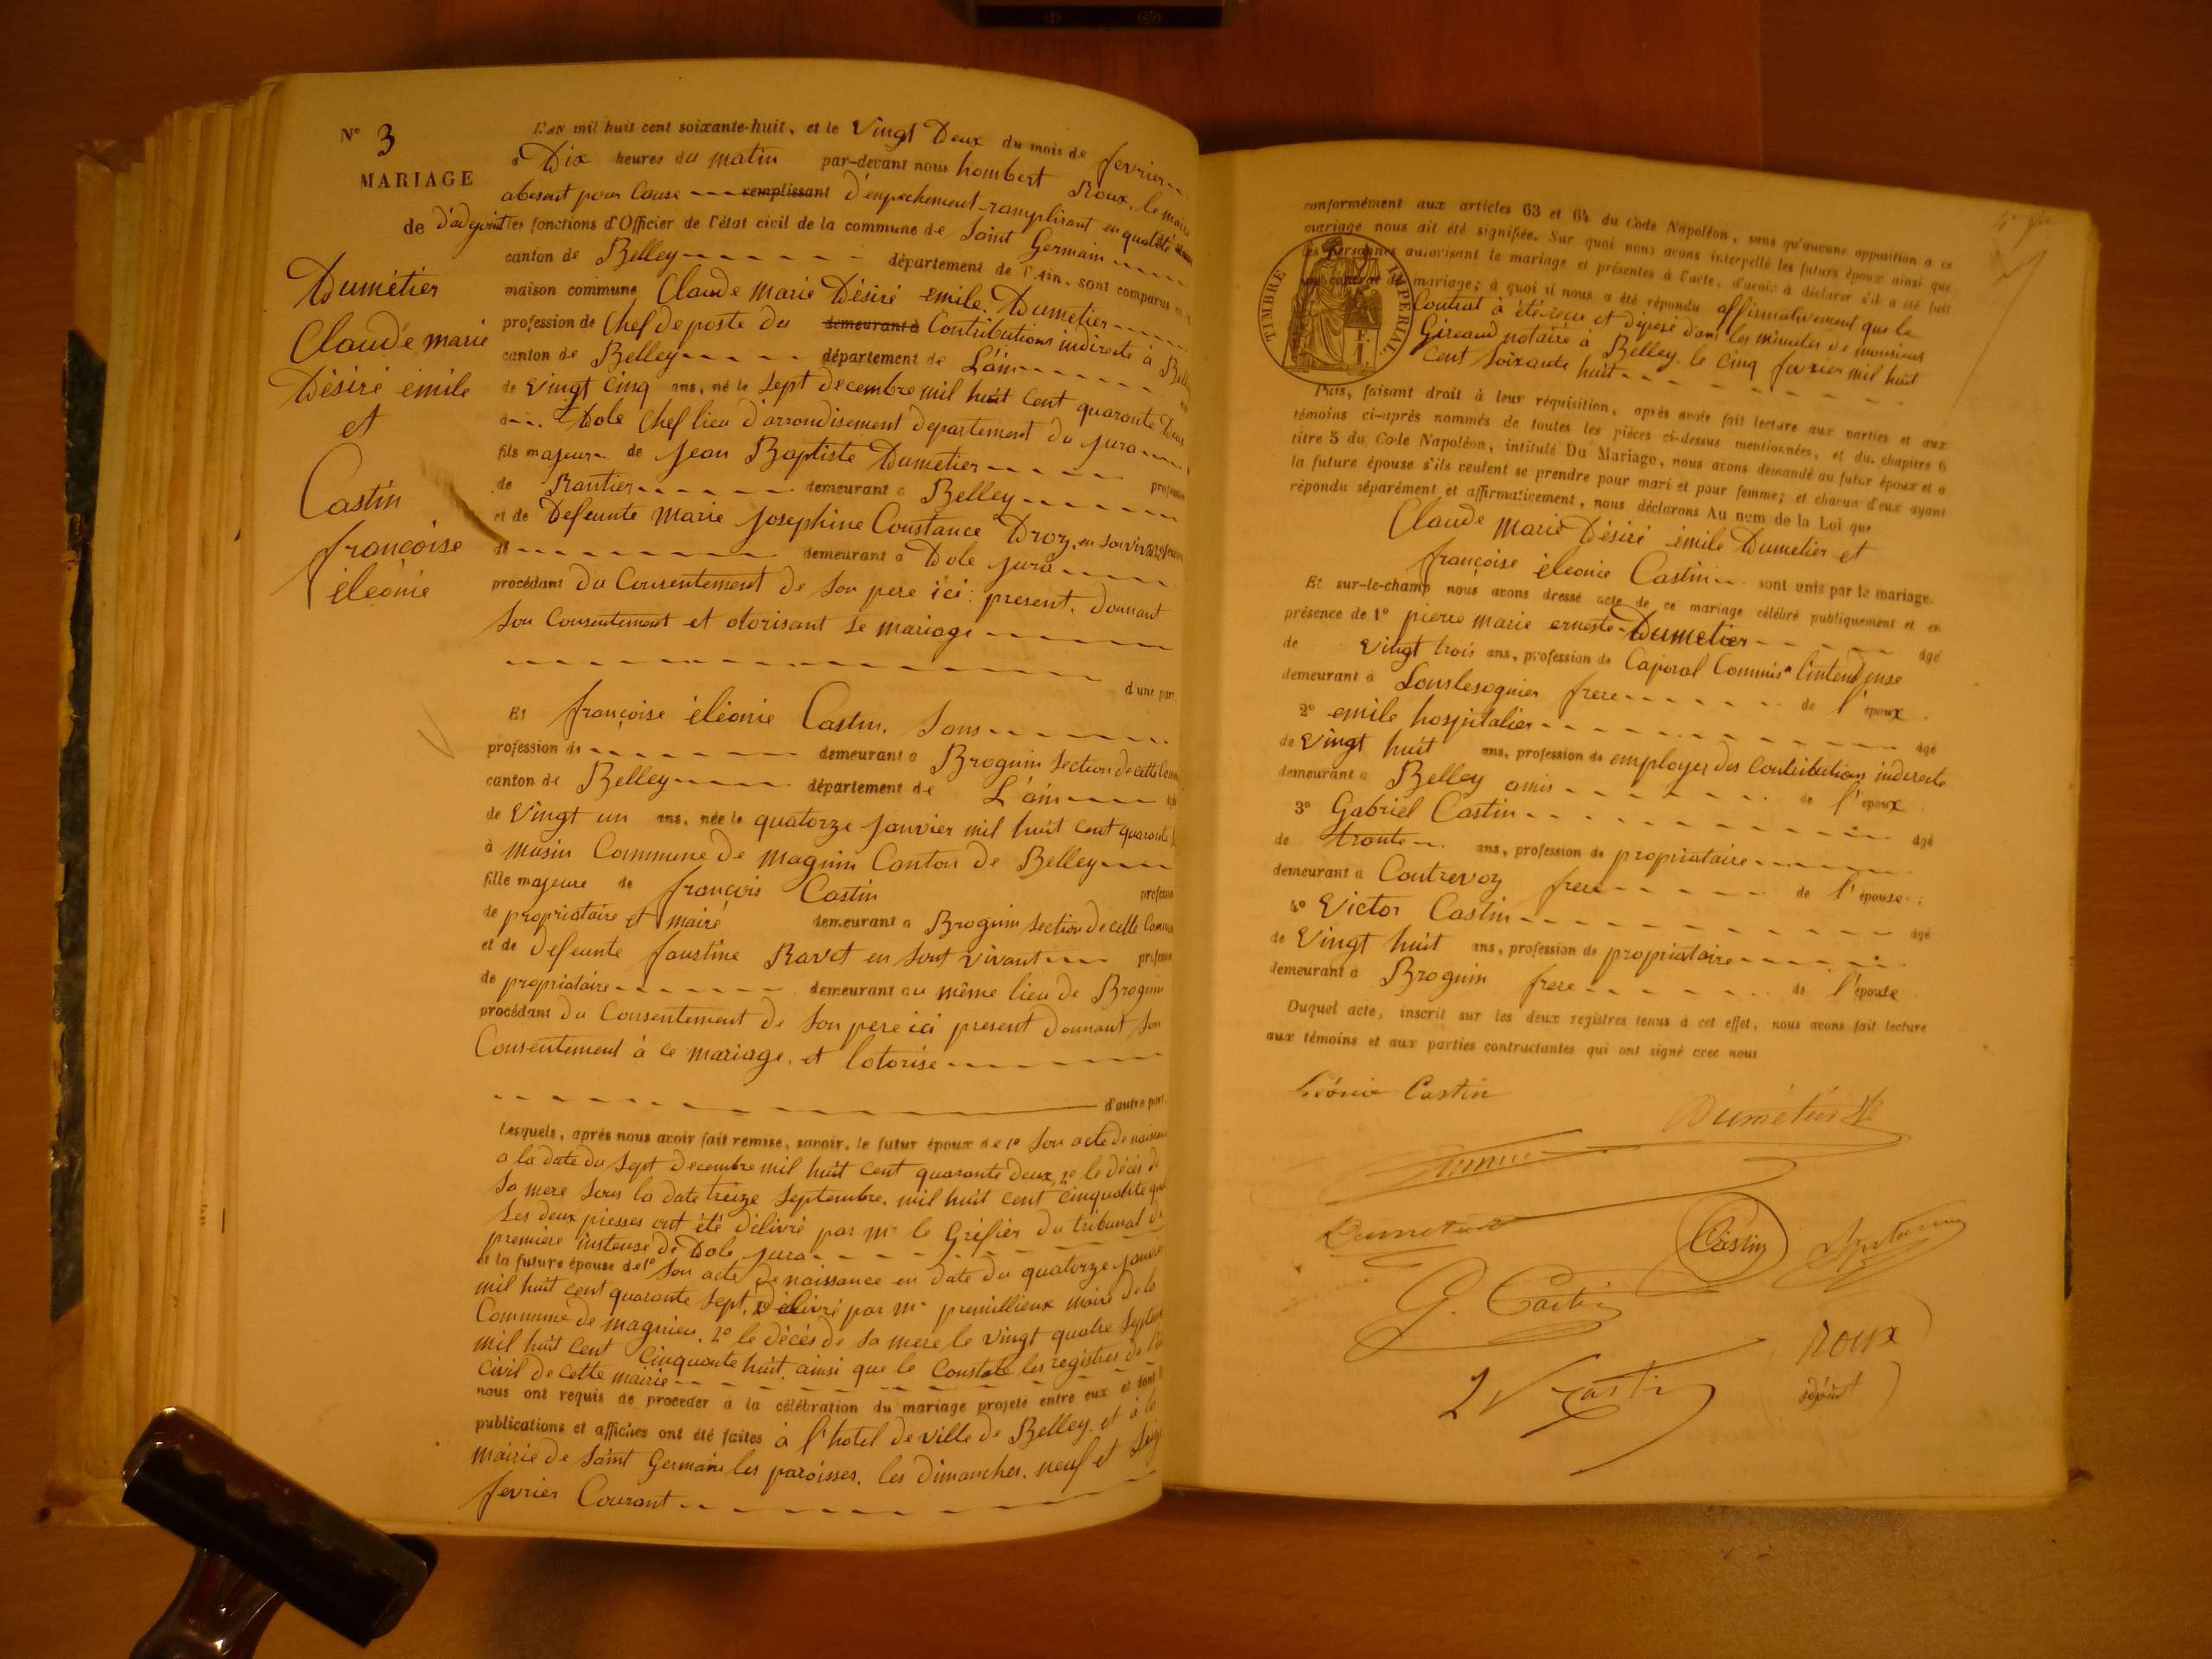 N° 3
MARIAGE
de
Dumétier
Claude marie
Désiré émile
et
Castin
françoise
éléonie
L'an mil huit cent soixante-huit, et le Vingt Deux du mois de fevrier
à Dix heures du matin par-devant nous hombert Roux, le maire
absent pour Cause remplissant d'enpechement ramplisant en qualité
d'adejoint les fonctions d'Officier de l'état civil de la commune de Saint Germain
canton de Belley département de l'Ain, sont comparus en
maison commune Claude marie Désiré emile Dumetier
profession de Chef de poste des demeurant à Contributions indirecte à Belley
canton de Belley département de L'ain
de vingt cinq ans, né le Sept decembre mil huit Cent quarante Deux
à Dole Chef lieu d'arrondisement departement du jura
fils majeur de Jean Baptiste Dumetier profession
de Rantier demeurant à Belley
et de Defeunte Marie Josephine Constance Droz, en son vivant
de demeurant à Dole jura
procédant du Consentement de Son pere ici present, Donnant
Son Consentement et otorisant se mariage
d'une part
Et françoise éléonie Castin, Sans
profession de demeurant à Brognin Section de cette
canton de Belley département de L'ain
de Vingt un ans, née le quatorze Janvier mil huit cent quarante
à musin Commune de magnin Canton de Belley
fille majeure de françois Castin profession
de propriataire et mairé demeurant à Brognin Section de cette Commune
et de defeunte faustine Ravet en Sont vivant profession
de propriataire demeurant au même lieu de Brognin
procédant du Consentement de Son pere ici present Donnant Son
Consentement à ce mariage, et l'otorise
d'autre part.
Lesquels, après nous avoir fait remise, savoir, le futur époux de 1° Son acte de naissance
a la date du Sept Decembre mil huit Cent quarante Deux, 2° le décès de
Sa mere Sous la date treize Septembre, mil huit cent cinquante
Les deux piesses ont été délivré par mr le Gréfier du tribunal de
première instense de Dole jura
et la future épouse de 1° Son acte de naissance en date du quatorze janvier
mil huit cent quarante Sept, délivré par mr premillieux maire de la
Commune de magnieu, 2° le décès de Sa mere le vingt quatre Septembre
mil huit Cent Cinquante huit, ainsi que le Constate les registres de l'état
Civil de cette mairie
nous ont requis de procéder à la célébration du mariage projeté entre eux et dont
publications et affiches ont été faites à l'hotel de ville de Belley, et à la
mairie de Saint Germain les paroisses, les Dimanches, neuf et Seize
fevrier Courant
conformément aux articles 63 et 64 du Code Napoléon, sans qu'aucune opposition à ce
mariage nous ait été signifiée. Sur quoi nous avons interpellé les futurs époux ainsi que
les personnes autorisant le mariage et présentes à l'acte, d'avoir à déclarer s'il a été fait
un contrat de mariage; à quoi il nous a été répondu affirmativement que le
TIMBRE IMPERIAL
1 F.
Contrat à été recu et déposé dans les minutes de monsieur
Gireaud notaire à Belley, le Cinq fevrier mil huit
Cent Soixante huit
Puis, faisant droit à leur réquisition, après avoir fait lecture aux parties et aux
témoins ci-après nommés de toutes les pièces ci-dessus mentionnées, et du chapitre 6
titre 5 du Code Napoléon, intitulé Du Mariage, nous avons demandé au futur époux et à
la future épouse s'ils veulent se prendre pour mari et pour femme; et chacun d'eux ayant
répondu séparément et affirmativement, nous déclarons Au nom de la Loi que
Claude Marie Désiré émile Dumetier et
françoise éléonie Castin sont unis par le mariage.
Et sur-le-champ nous avons dressé acte de ce mariage célébré publiquement et en
présence de 1° pierre marie erneste Dumetier âgé
de Vingt trois ans, profession de Caporal Commis a l'intendense
demeurant à Lonslesognier frere de l'époux
2° emile hospitalier âgé
de Vingt huit ans, profession de employer des Contributions indirecte
demeurant à Belley amis de l'époux
3° Gabriel Castin âgé
de trante ans, profession de propriataire
demeurant à Contrevoz frere de l'épouse
4° Victor Castin âgé
de Vingt huit ans, profession de propriataire
demeurant à Brognin frere de l'épouse
Duquel acte, inscrit sur les deux registres tenus à cet effet, nous avons fait lecture
aux témoins et aux parties contractantes qui ont signé avec nous
Léonie Castin
Dumétier
Dumetier
Castin
G. Castin
V Castin
Roux
adjoint